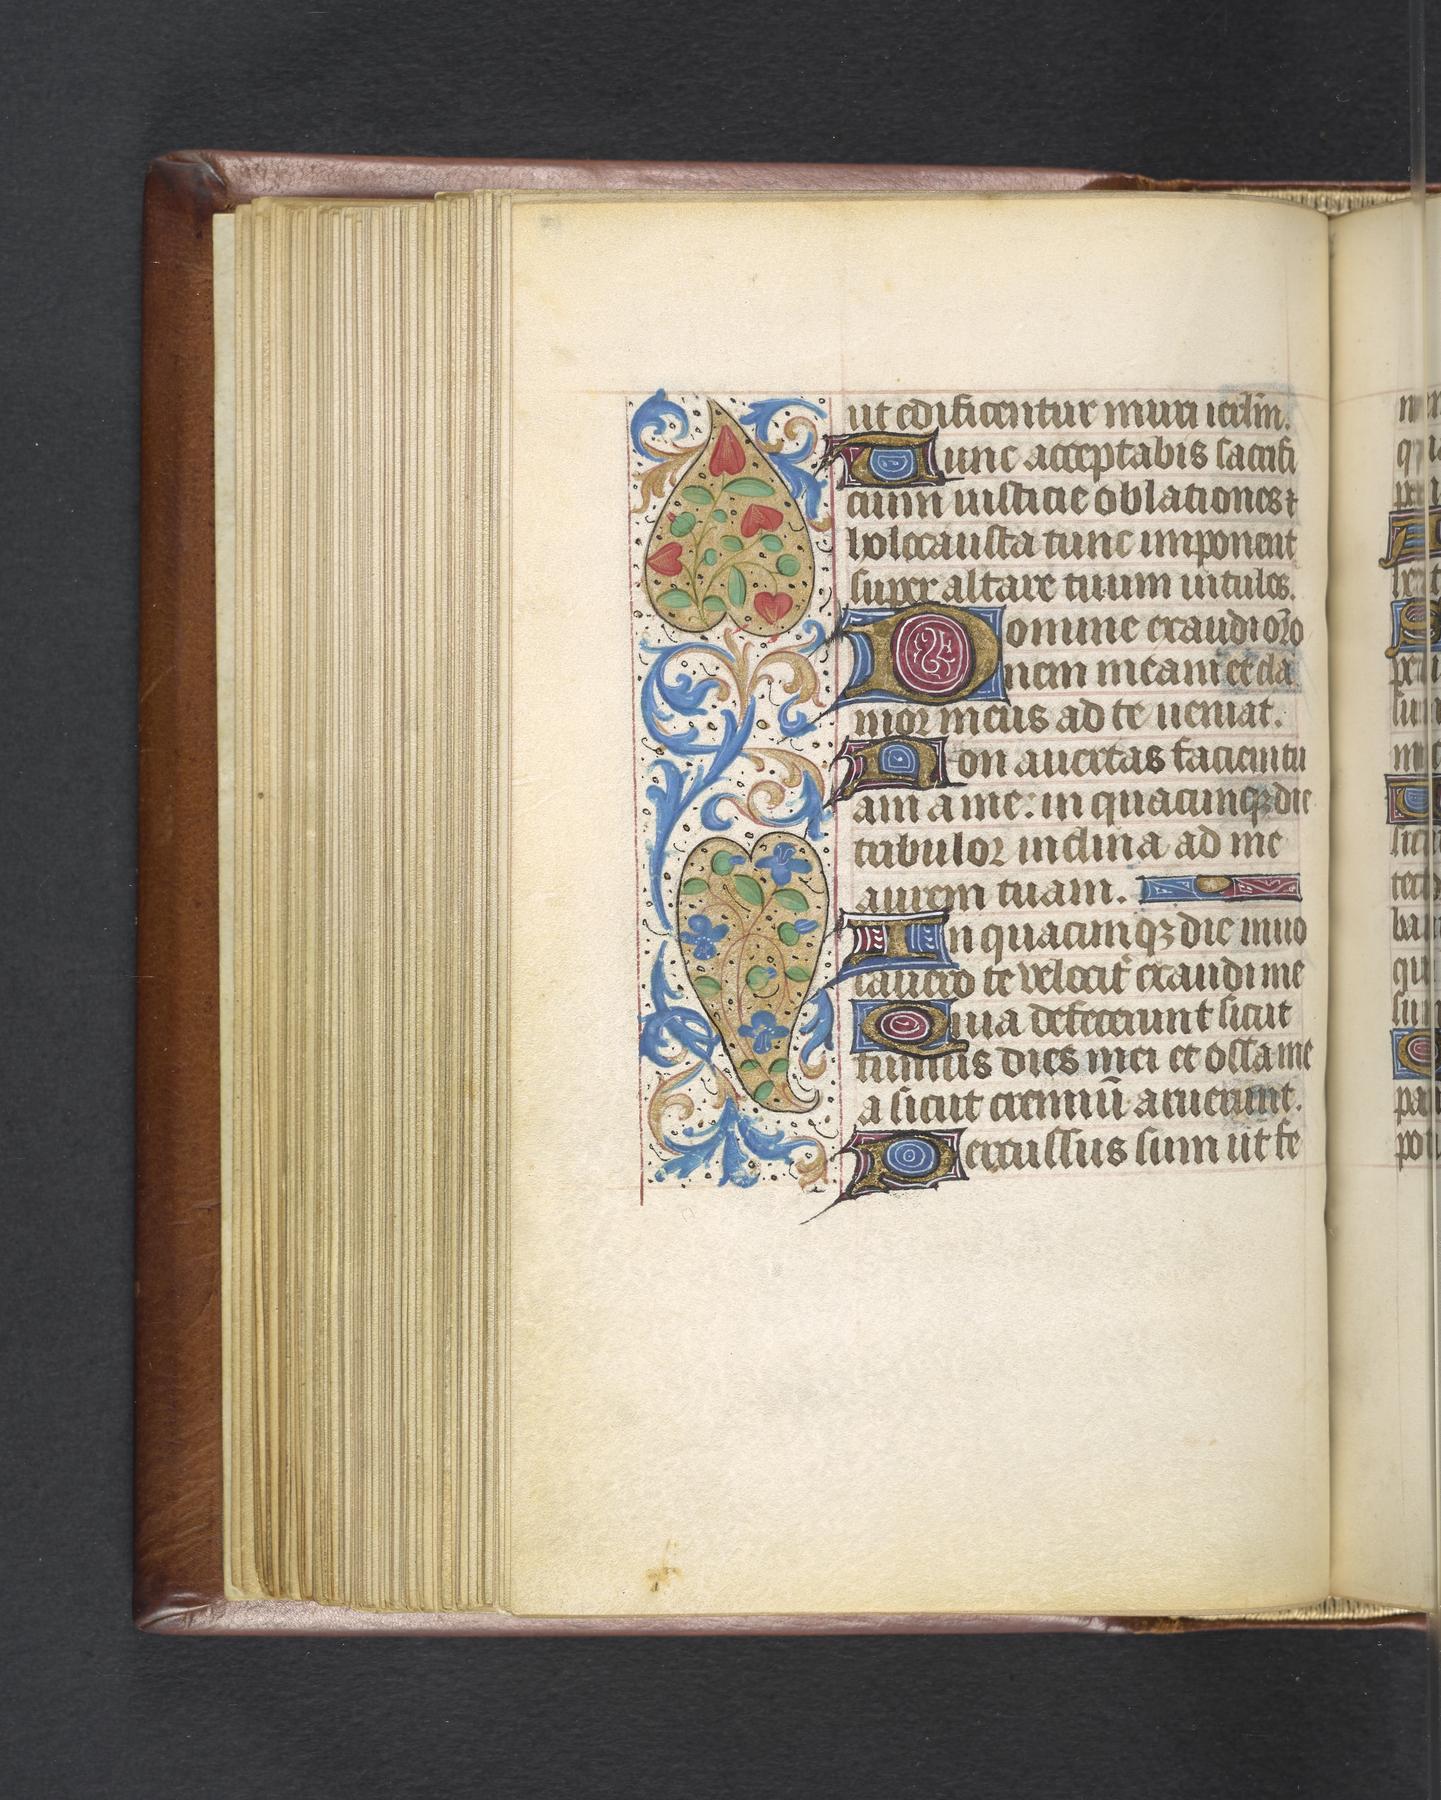 ut edificentur muri ierl̃m.
Tunc acceptabis sacrifi
cium iusticie oblationes ⁊
holocausta tunc imponent
super altare tuum uitulos.
Domine exaudi or̃o
nem meam et cla
mor meus ad te ueniat.
Non auertas faciem tu
am a me: in quacunqꝫ die
tribulor inclina ad me
aurem tuam.
In quacunqꝫ die inuo
cauero te velocit̃ exaudi me
Quia defecerunt sicut
fumus dies mei et ossa me
a sicut cremiũ aruerunt.
Percussus sum ut fe